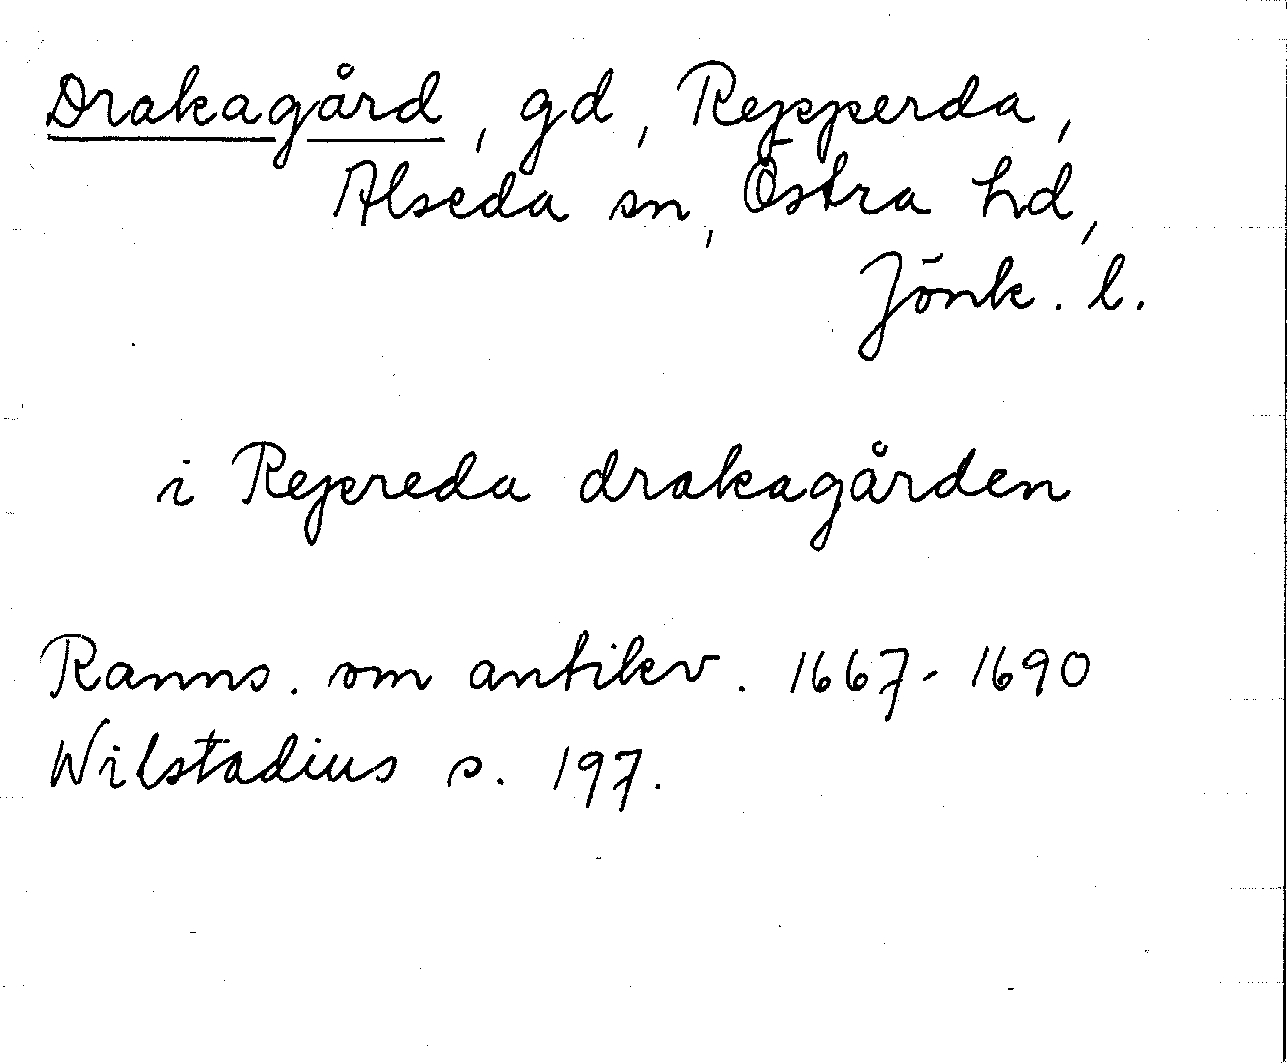 Drakagård, gd, Repperda,
Alseda sn, Östra hd,
Jönk. l.
i Repreda drakagården
Ranns. om antikv. 1667-1690
Wilstadius s. 197.